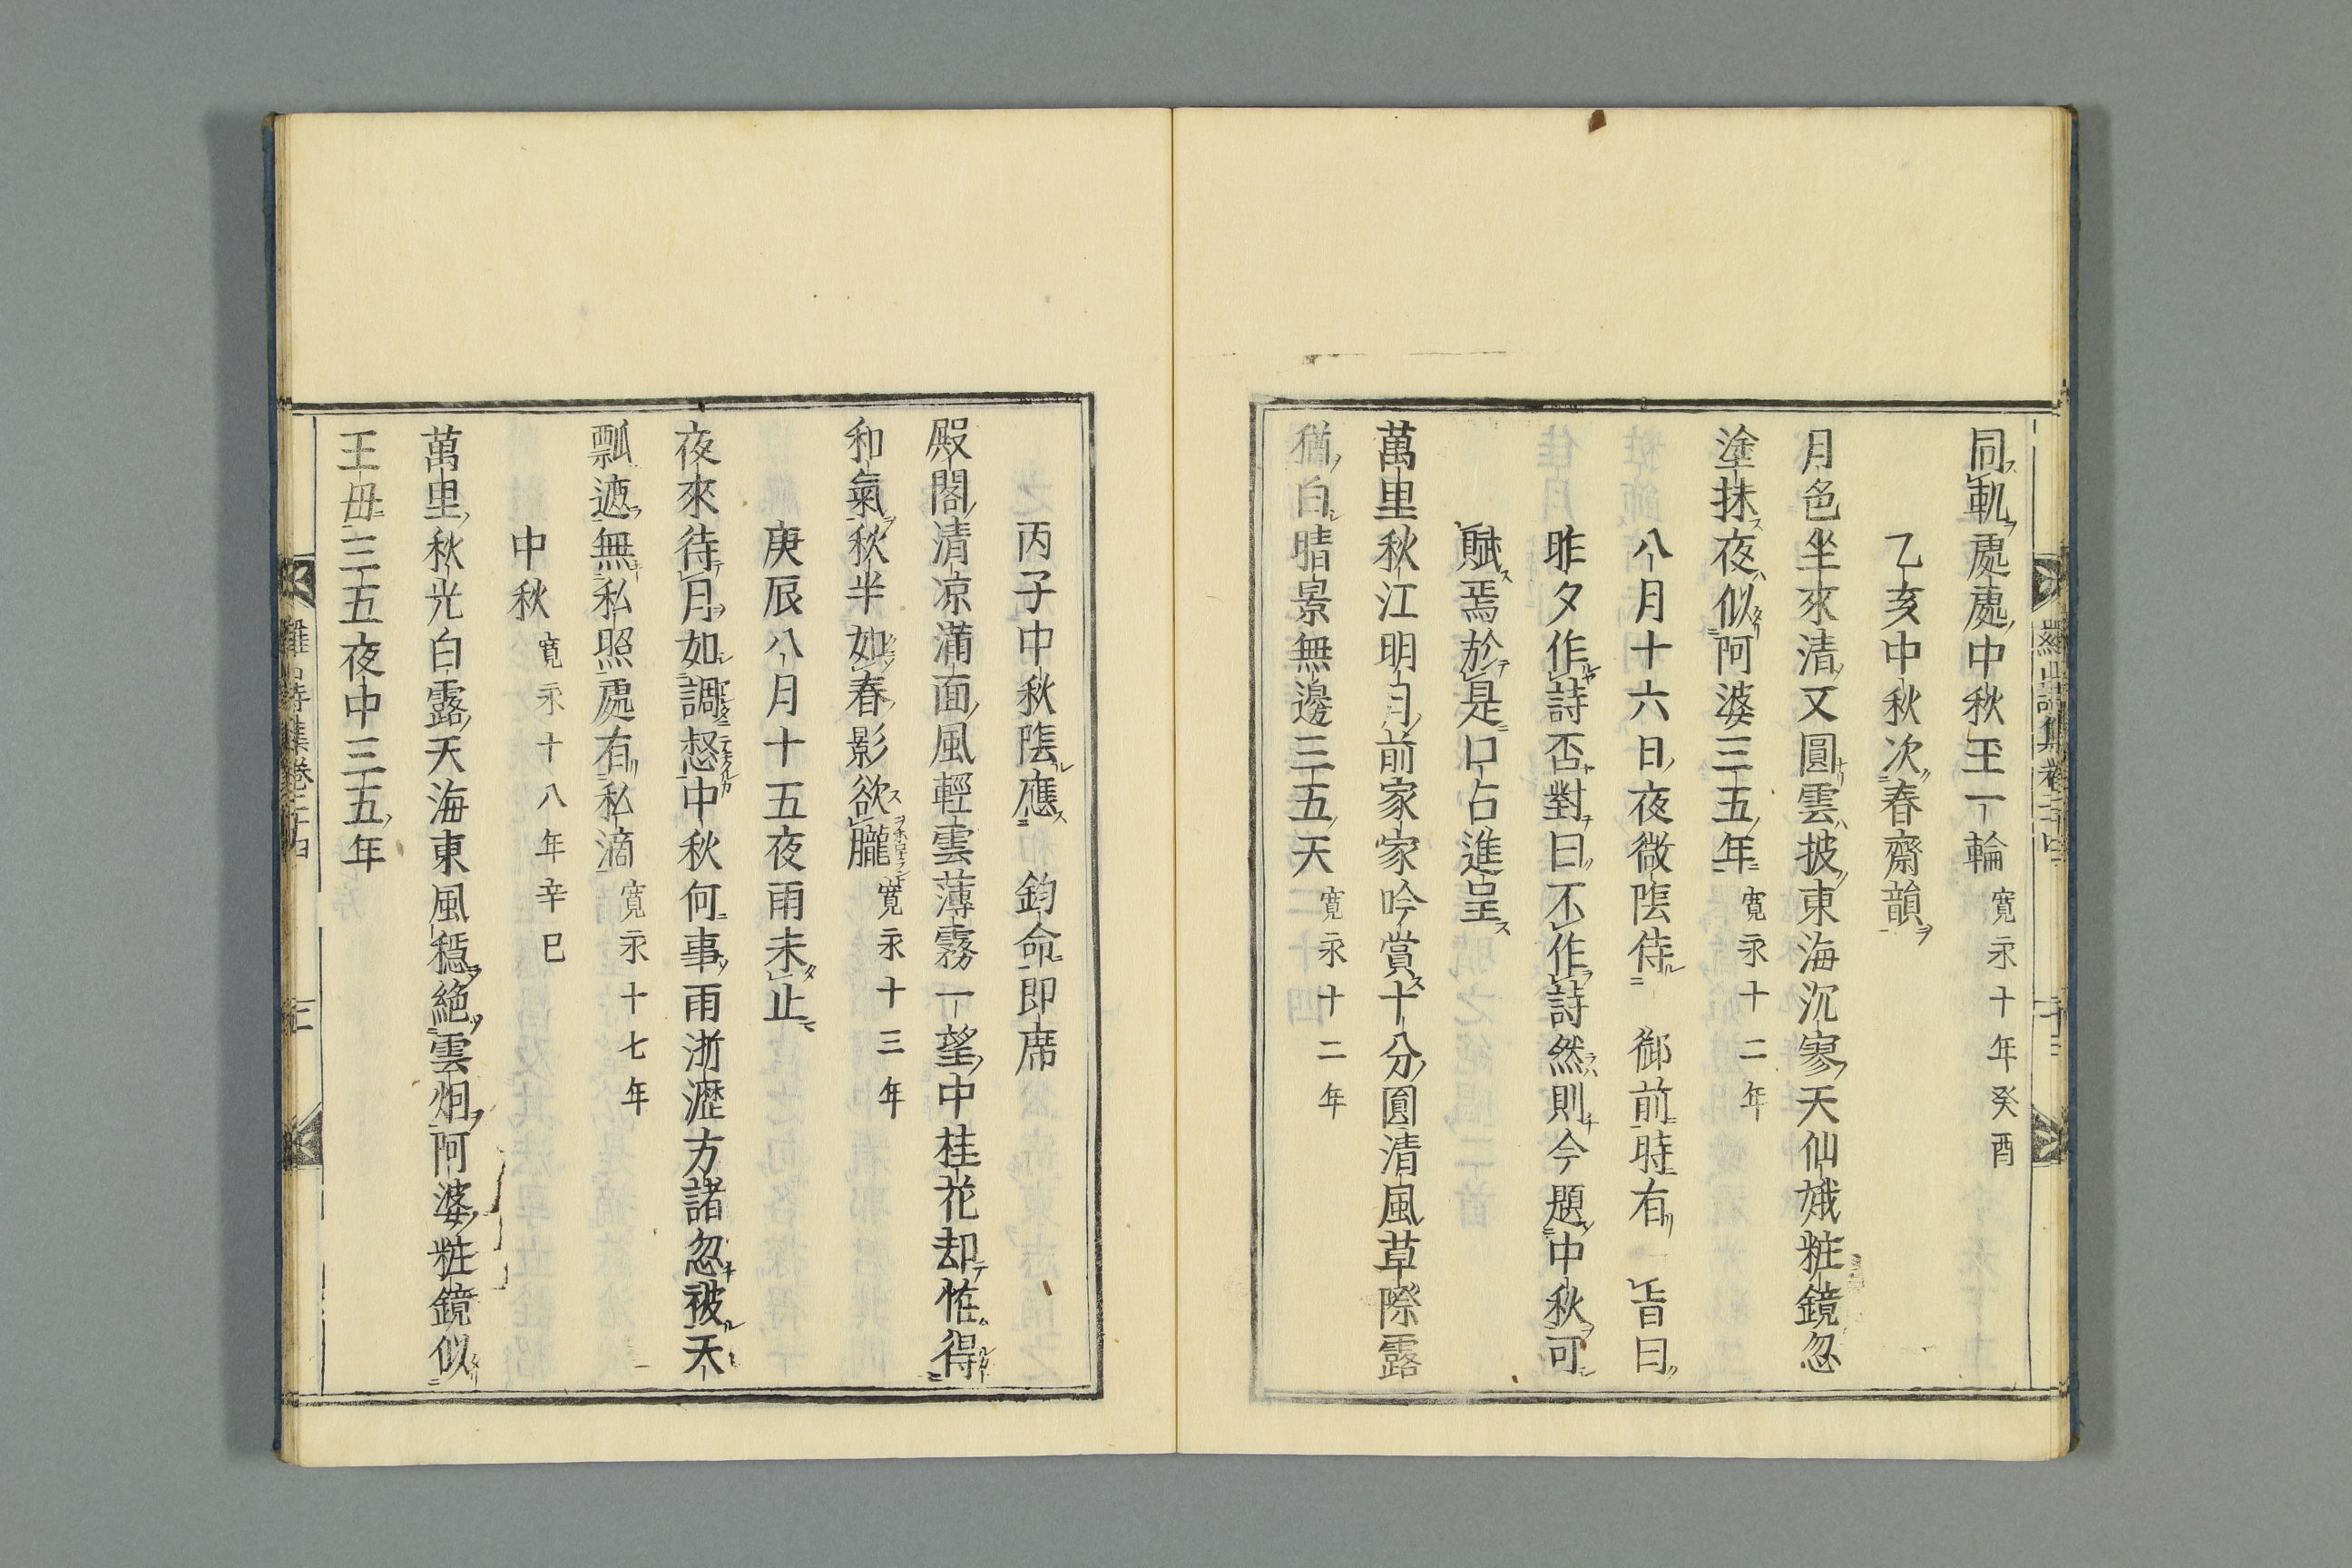 同軌處處中秋玉一輪 寛永十年癸酉
乙亥中秋次春齋韻
月色坐來清又圓雲披東海沉寥天仙娥粧鏡忽
塗抹夜似阿婆三五年 寛永十二年
八月十六日夜微陰侍 御前時有 旨曰
昨夕作詩否對曰不作詩然則今題中秋可
賦焉於是口占進呈
萬里秋江明月前家家吟賞十分圓清風草際露
猶白晴景無邊三五天 寛永十二年
丙子中秋陰應 鈞命即席
殿閣清凉滿面風輕雲薄霧一望中桂花却恠得
和氣秋半如春影欲朧 寛永十三年
庚辰八月十五夜雨未止
夜來待月如調惄中秋何事雨淅瀝方諸忽被天
瓢遮無私照處有私滴 寛永十七年
中秋 寛永十八年辛巳
萬里秋光白露天海東風穏絶雲烟阿婆粧鏡似
王母三五夜中三五年
羅山詩集卷三十四